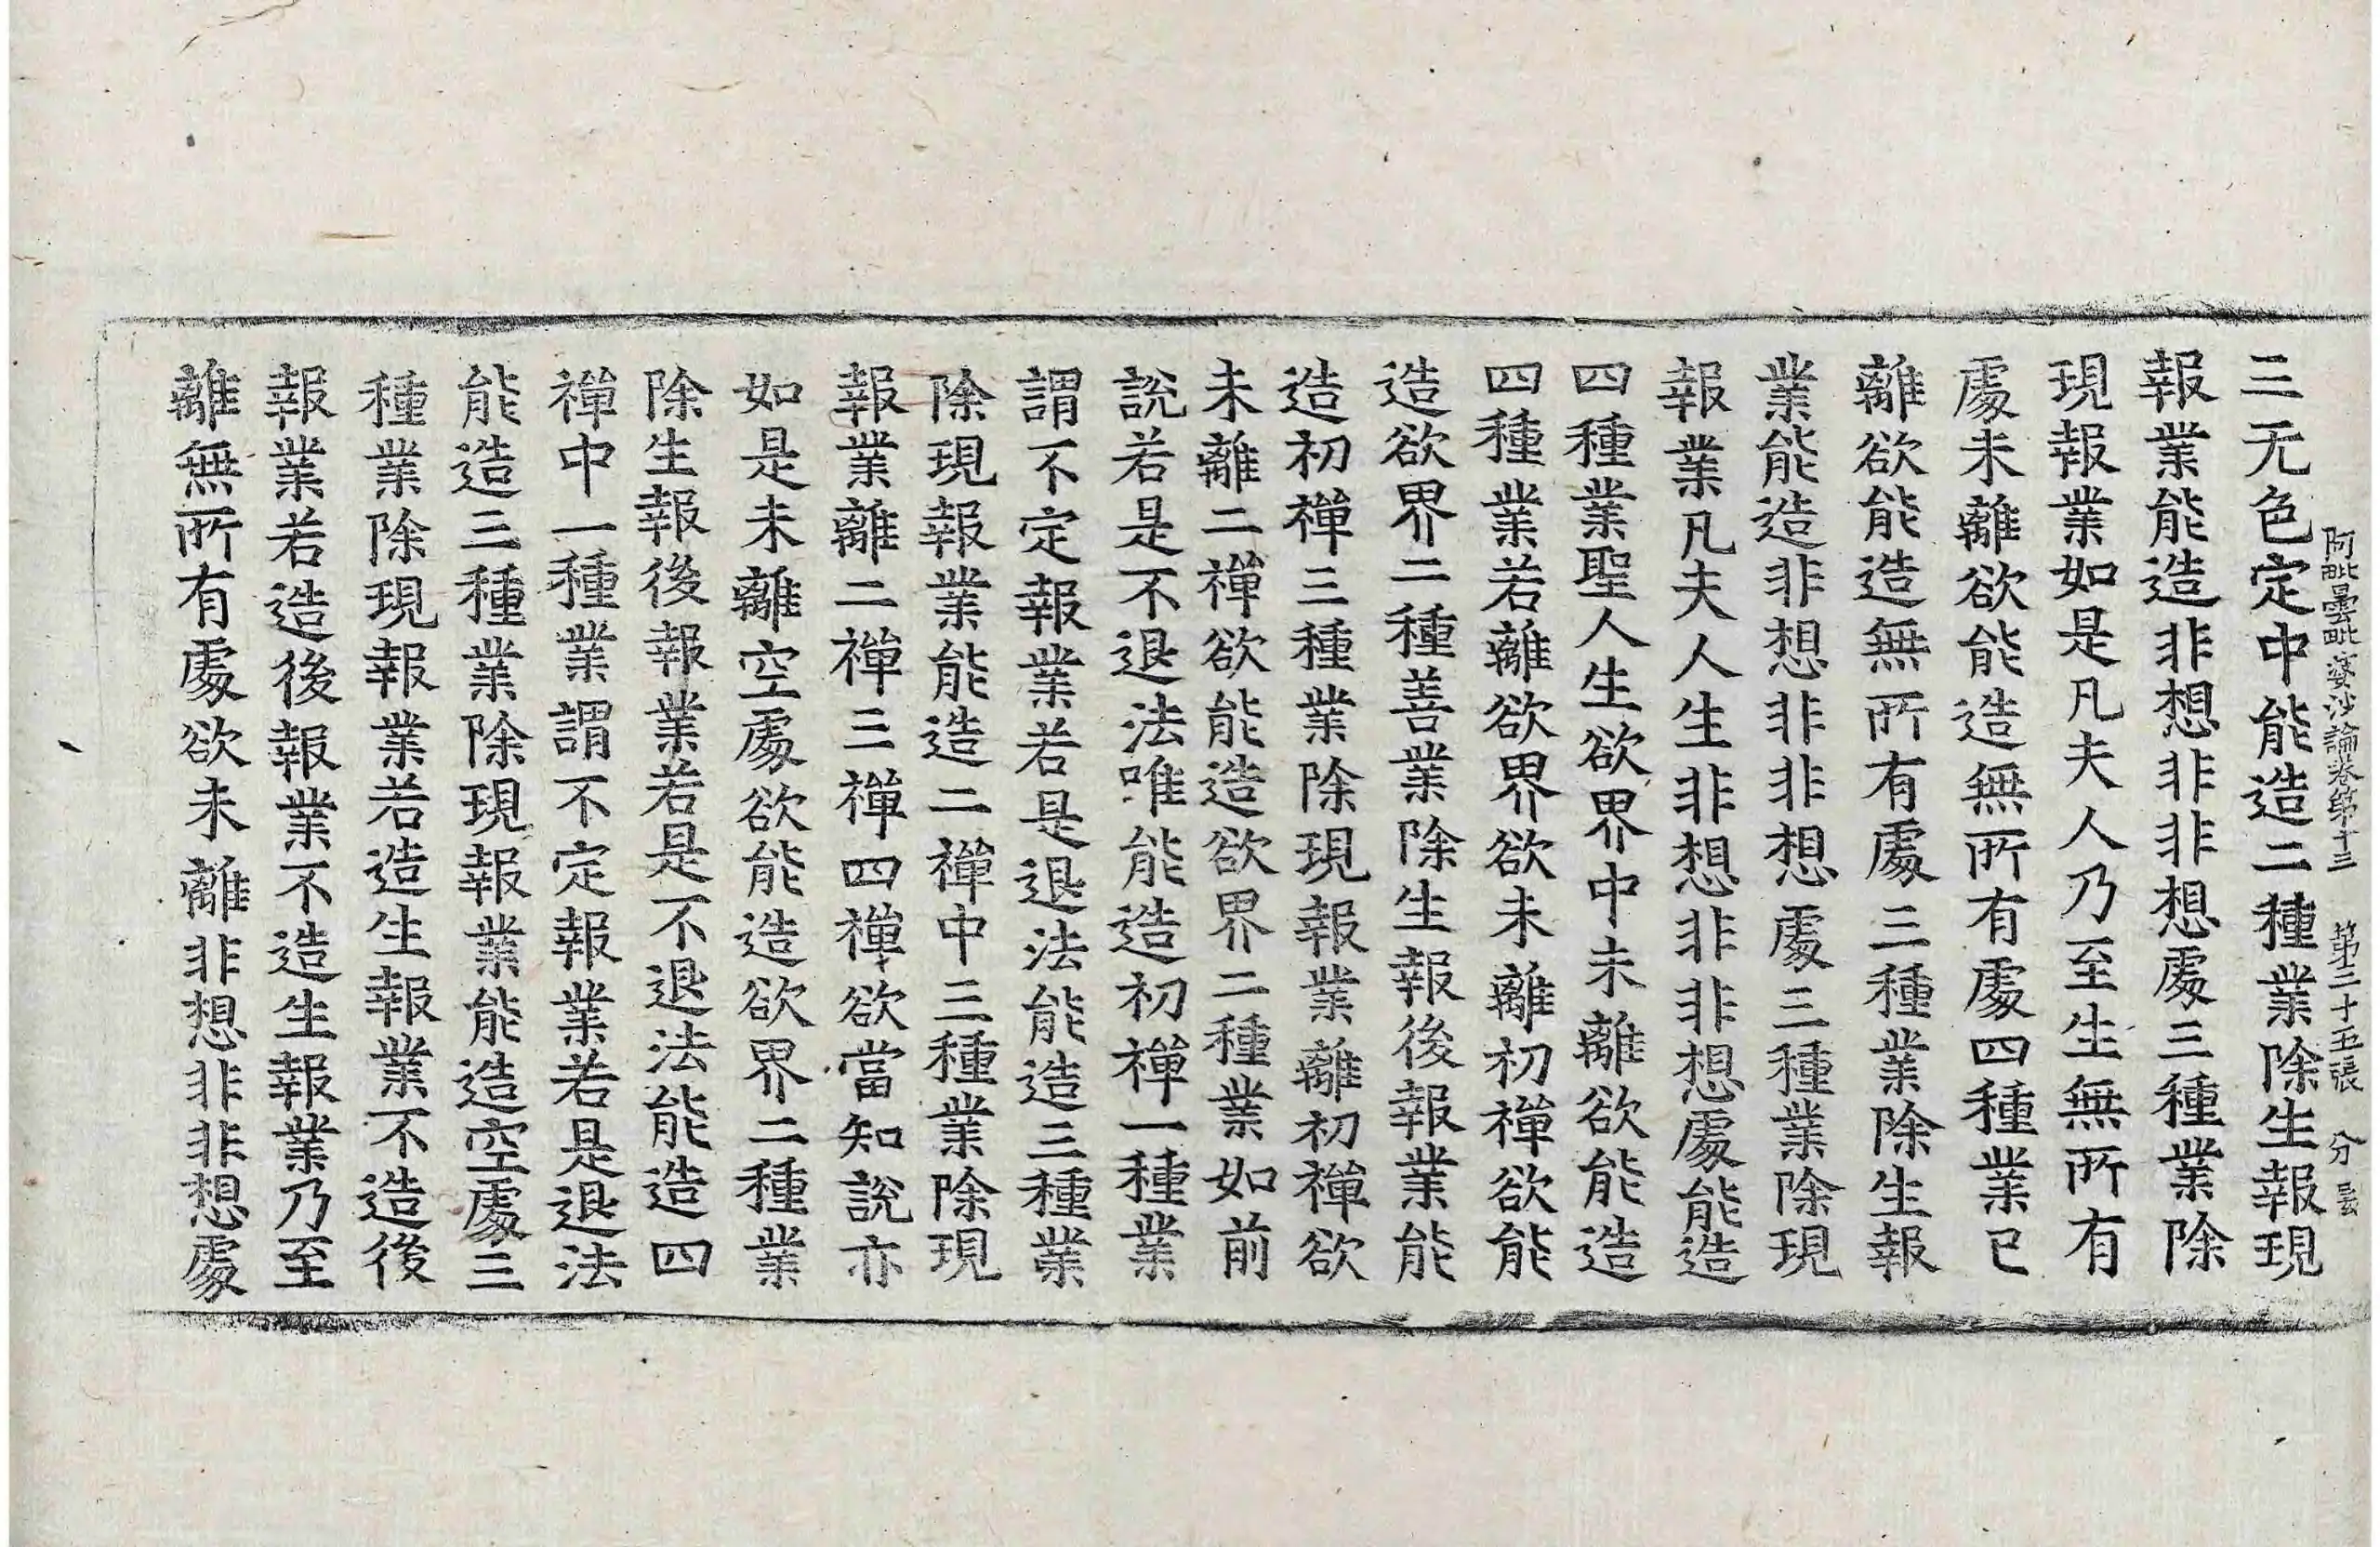 阿毗曇毗婆沙論卷第十三 第三十五張 分 曇
三无色定中能造二種業除生報現
報業能造非想非非想處三種業除
現報業如是凡夫人乃至生無所有
處未離欲能造無所有處四種業已
離欲能造無所有處三種業除生報
業能造非想非非想處三種業除現
報業凡夫人生非想非非想處能造
四種業聖人生欲界中未離欲能造
四種業若離欲界欲未離初禪欲能
造欲界二種善業除生報後報業能
造初禪三種業除現報業離初禪欲
未離二禪欲能造欲界二種業如前
說若是不退法唯能造初禪一種業
謂不定報業若是退法能造三種業
除現報業能造二禪中三種業除現
報業離二禪三禪四禪欲當知說亦
如是未離空處欲能造欲界二種業
除生報後報業若是不退法能造四
禪中一種業謂不定報業若是退法
能造三種業除現報業能造空處三
種業除現報業若造生報業不造後
報業若造後報業不造生報業乃至
離無所有處欲未離非想非非想處